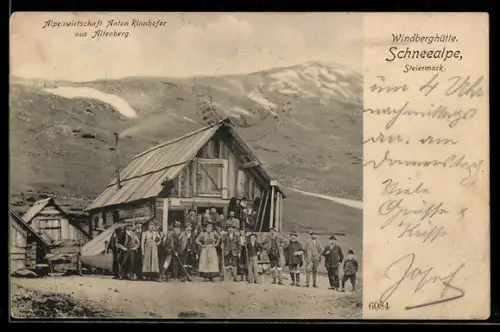 Alpenwirtschaft Anton Rinnhofer
aus Altenberg.
Windberghütte.
Schneealpe,
Steiermark.
um 4 Uhr
nachmittags
an. am
Donnerstag
Viele
Grüsse &
Küsse
Josef
6084